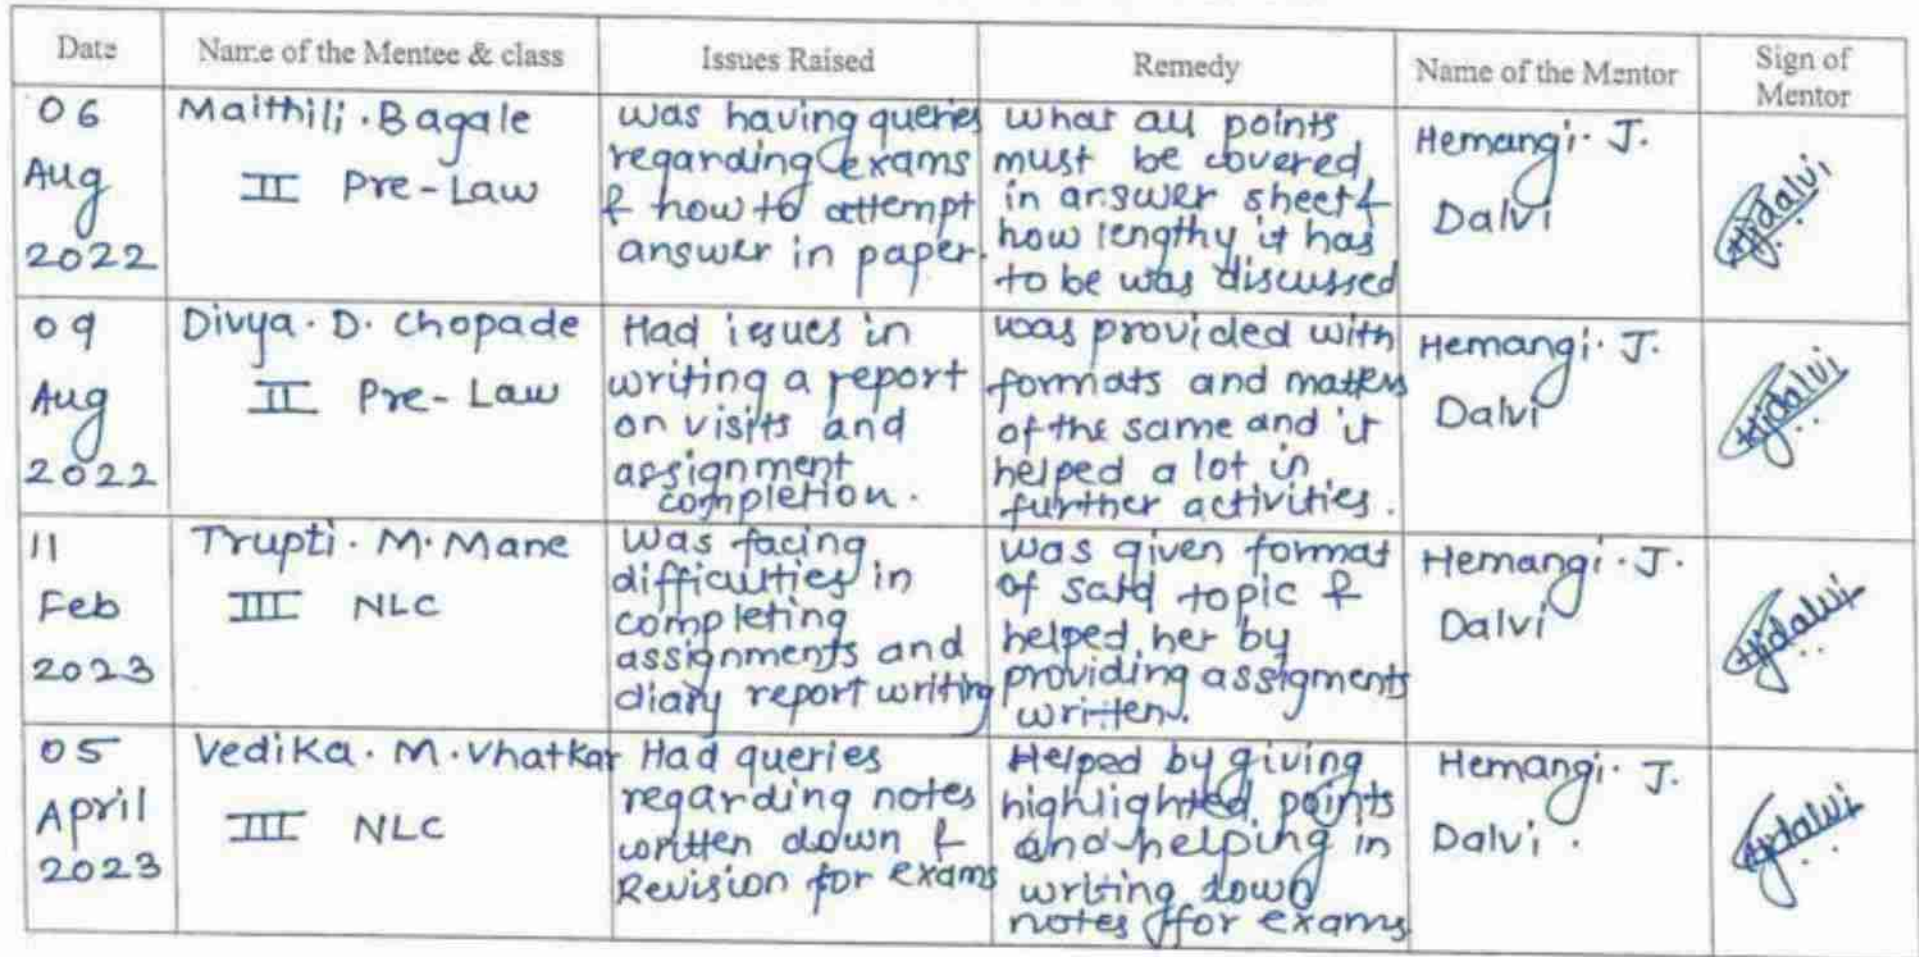 Date
Name of the Mentee & class
Issues Raised
Remedy
Name of the Mentor
Sign of
Mentor
06
Aug
2022
Maithili . Bagale
II Pre-Law
was having queries
regarding exams
& how to attempt
answer in paper.
what all points
must be covered
in answer sheet &
how lengthy it has
to be was discussed
Hemangi. J.
Dalvi
Hjdalvi
09
Aug
2022
Divya. D. Chopade
II Pre-Law
Had issues in
writing a report
on visits and
assignment
completion.
was provided with
formats and matters
of the same and it
helped a lot in
further activities.
Hemangi. J.
Dalvi
Hjdalvi
11
Feb
2023
Trupti. M. Mane
III NLC
Was facing
difficulties in
completing
assignments and
diary report writing
was given format
of said topic &
helped her by
providing assigments
written.
Hemangi. J.
Dalvi
Hjdalvi
05
April
2023
Vedika. M. Vhatkar
III NLC
Had queries
regarding notes
written down &
Revision for exams
Helped by giving
highlighted points
and helping in
writing down
notes for exams
Hemangi. J.
Dalvi.
Hjdalvi